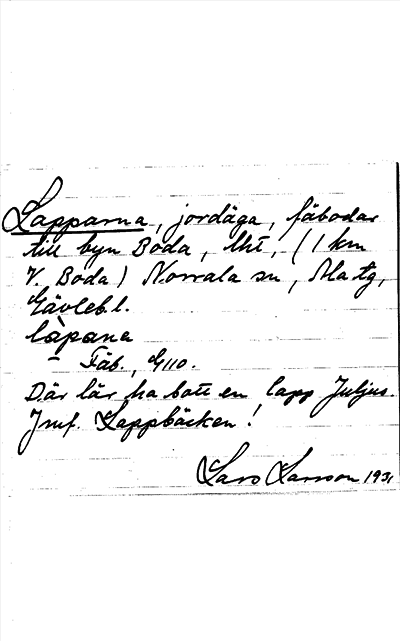 Lapparna, jordäga, fäbodar
till byn Boda, lht, (1 km
V. Boda) Norrala sn, Ala tg,
Gävleb. l.
làpana
– Fäb., G110.
Där lär ha bott en lapp Juljus.
Jmf. Lappbäcken!
Lars Larsson 1931